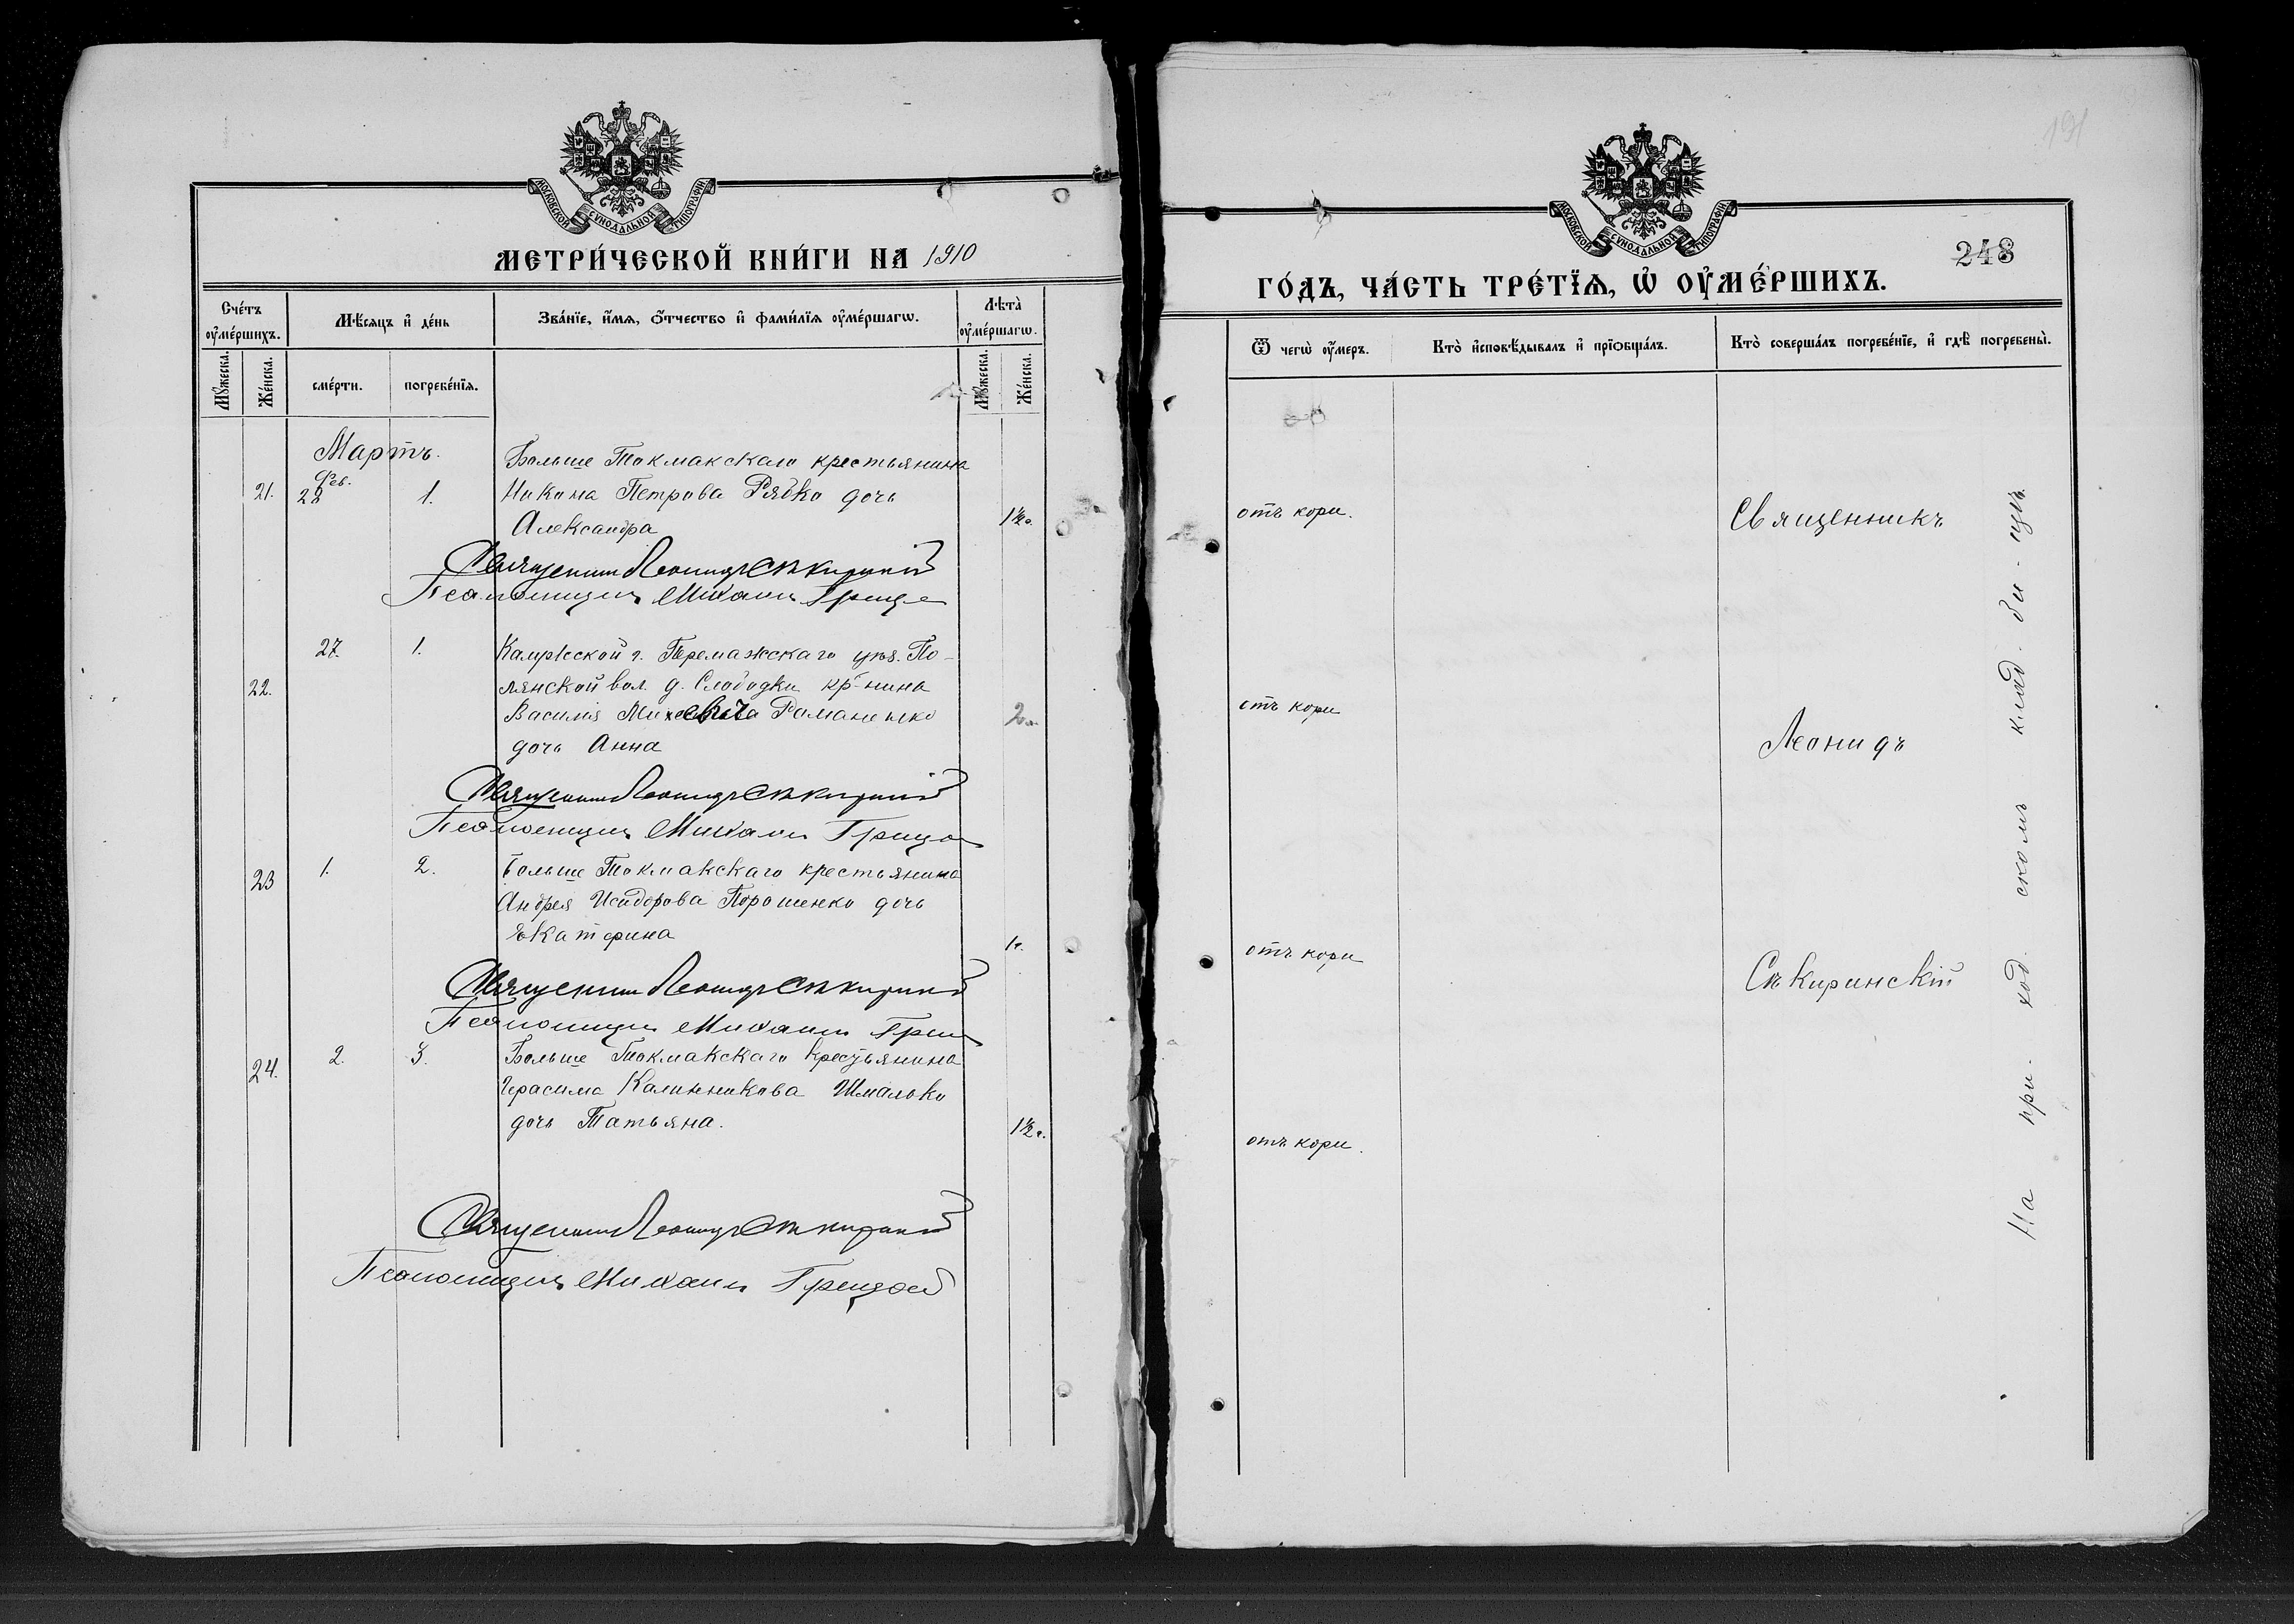 МОСКОВСКОЙ СѴНОДАЛЬНОЙ ТИПОГРАФІИ
МЕТРИ́ЧЕСКОЙ КНИ́ГИ НА 1910
Сче́тъ оу҆ме́ршихъ.
Мѣ́сяцъ и҆ де́нь
Зва́нїе, и҆́мѧ, ѻ҆́тчество и҆ фами́лїѧ оу҆ме́ршагѡ.
Лѣта̀ оу҆ме́ршагѡ.
Мꙋ́жеска.
Же́нска.
сме́рти.
погребе́нїѧ.
Мꙋ́жеска.
Же́нска.
Мартъ.
Больше Токмакскаго крестьянина
21.
Фев.
28
1.
Никона Петрова Рябко дочь
Александра
1½г.
Священникъ Леонидъ Сѣкиринскій
Псаломщикъ Михаилъ
27.
1.
Калужской г. Перемажскаго уѣз. По-
22.
лянской вол. д. Слободки кр-нина
Василія Михеевича Романенко
2
дочь Анна
Священникъ Леонидъ Сѣкиринскій
Псаломщикъ Михаилъ
23
1.
2.
Больше Токмакскаго крестьянина
Андрея Исидорова Порошенко дочь
Екатерина
1г.
Священникъ Леонидъ Сѣкиринскій
Псаломщикъ Михаилъ
24.
2.
3.
Больше Токмакскаго крестьянина
Герасима Калинникова Шмалько
дочь Татьяна.
1½г.
Священникъ Леонидъ Сѣкиринскій
Псаломщикъ Михаилъ
191
МОСКОВСКОЙ СѴНОДАЛЬНОЙ ТИПОГРАФІИ
248
ГО́ДЪ, ЧА́СТЬ ТРЕ́ТЇѦ, Ѡ҆ ОУ҆МЕ́РШИХЪ.
Ѿ чегѡ̀ оу҆́меръ.
Кто̀ и҆сповѣ́дывалъ и҆ прїѡбща́лъ.
Кто̀ соверша́лъ погребе́нїе, и҆ гдѣ̀ погребены̀.
отъ кори.
Священникъ
отъ кори
Леонидъ
отъ кори
Сѣкиринскій
отъ кори.
На при- ход. скомъ клад- би- щѣ.